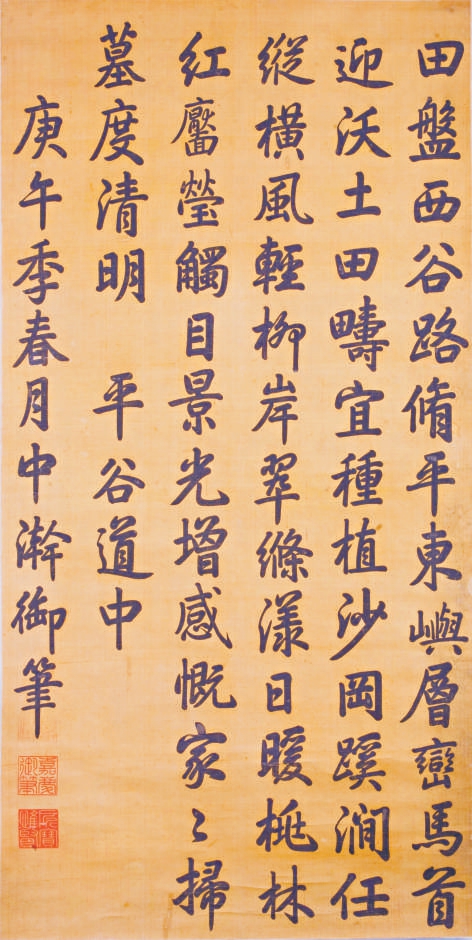 田盤西谷路脩平東嶼層巒馬首
迎沃土田疇宜種植沙岡蹊澗任
縱橫風輕柳岸翠絛漾日暖桃林
紅靨瑩觸目景光增感慨家〻掃
墓度清明 平谷道中
庚午季春月中澣御筆
嘉慶御筆